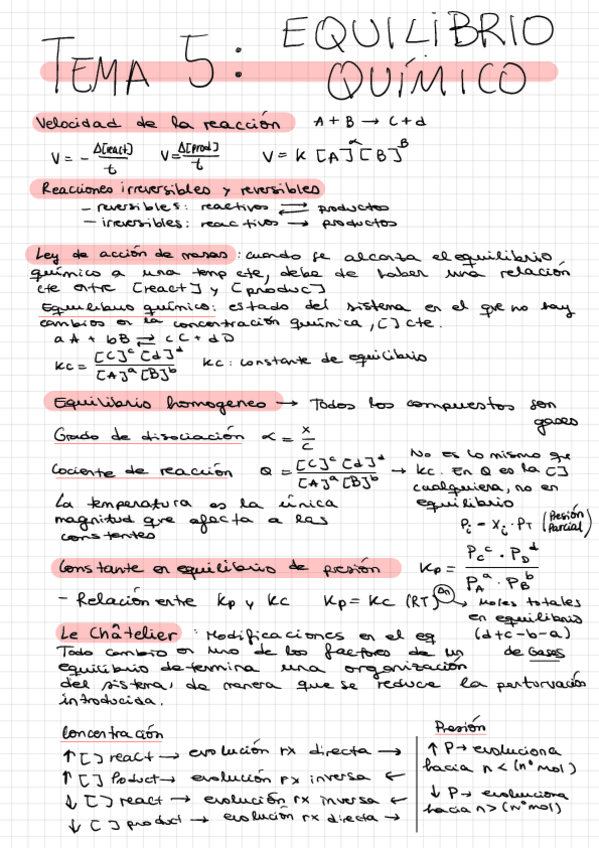 TEMA 5: EQUILIBRIO QUÍMICO
Velocidad de la reacción A + B → C + d
V = - Δ[react]/t V = Δ[prod]/t V = K [A]^α [B]^B
Reacciones irreversibles y reversibles
- reversibles: reactivos ⇄ productos
- irreversibles: reactivos → productos
Ley de acción de masas: cuando se alcanza el equilibrio
químico a una temp cte, debe de haber una relación
cte entre [react] y [produc]
Equilibrio químico: estado del sistema en el que no hay
cambios en la concentración química, [] cte.
a A + bB ⇄ c C + d D
Kc = [C]^c [d]^d / [A]^a [B]^b Kc: constante de equilibrio
Equilibrio homogeneo → Todos los compuestos son
gases
Grado de disociación α = x/c
Cociente de reacción Q = [C]^c [d]^d / [A]^a [B]^b → No es lo mismo que
Kc. En Q es la []
cualquiera, no en
equilibrio
La temperatura es la única
magnitud que afecta a las
constantes
Pi = Xi · PT (Presión Parcial)
Constante en equilibrio de presión Kp = Pc^c · PD^d / PA^a · PB^b
- Relación entre Kp y Kc Kp = Kc (RT)^Δn → Moles totales
en equilibrio
(d+c-b-a)
de gases
Le Châtelier: Modificaciones en el eq
Todo cambio en uno de los factores de un
equilibrio determina una organización
del sistema, de manera que se reduce la perturvación
introducida.
Concentración
↑ [] react → evolución rx directa →
↑ [] Product → evolución rx inversa ←
↓ [] react → evolución rx inversa ←
↓ [] product → evolución rx directa →
Presión
↑ P → evoluciona
hacia n < (nº mol)
↓ P → evoluciona
hacia n > (nº mol)